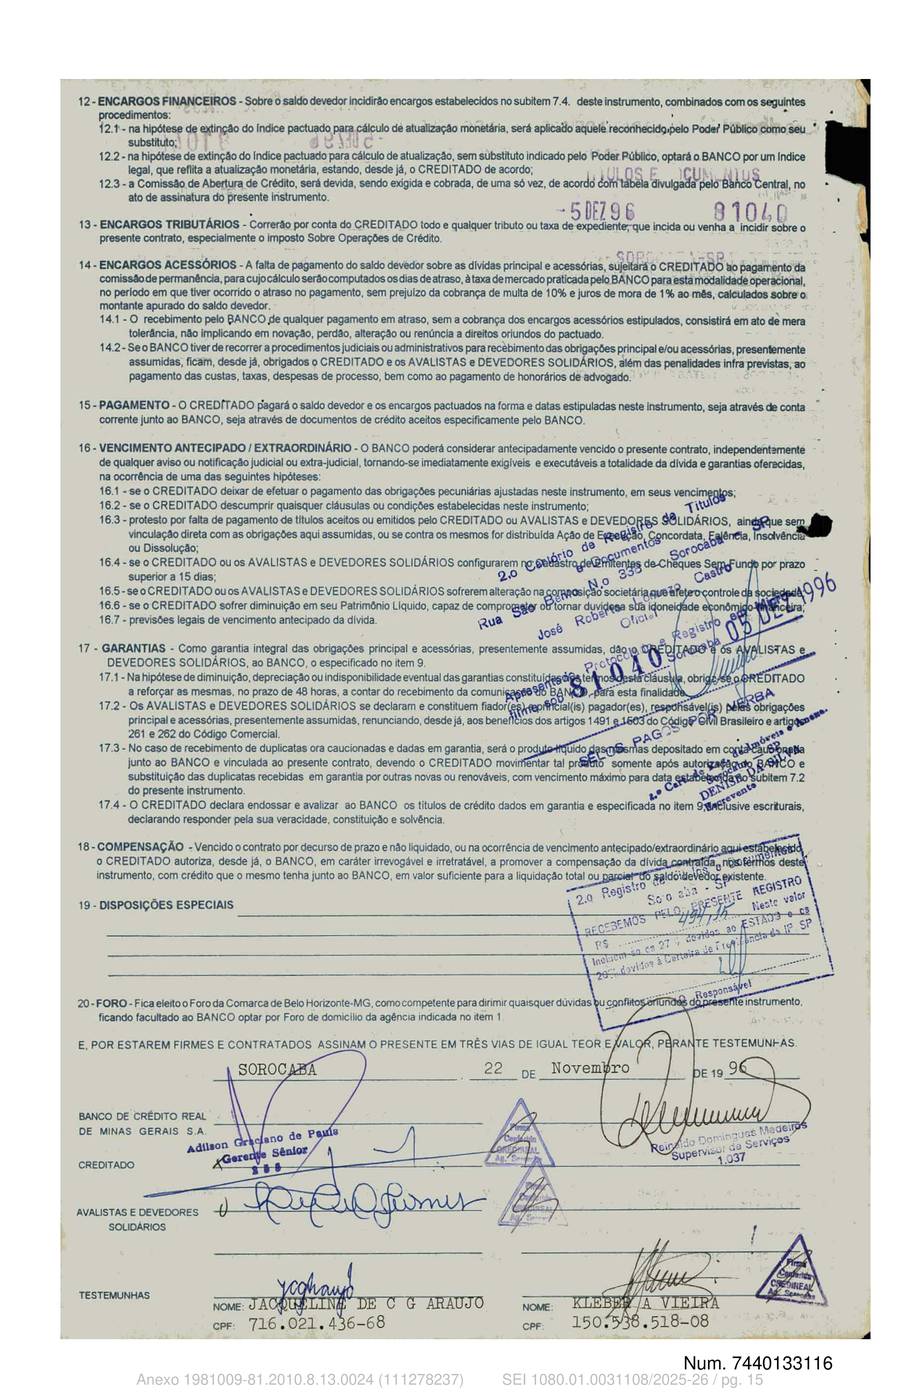 12 - ENCARGOS FINANCEIROS - Sobre o saldo devedor incidirão encargos estabelecidos no subitem 7.4. deste instrumento, combinados com os seguintes
procedimentos:
12.1 - na hipótese de extinção do Indice pactuado para cálculo de atualização monetária, será aplicado aquele reconhecido pelo Poder Público como seu
substituto;
12.2 - na hipótese de extinção do Indice pactuado para cálculo de atualização, sem substituto indicado pelo Poder Público, optará o BANCO por um Indice
legal, que reflita a atualização monetária, estando, desde já, o CREDITADO de acordo;
12.3 - a Comissão de Abertura de Crédito, será devida, sendo exigida e cobrada, de uma só vez, de acordo com tabela divulgada pelo Banco Central, no
ato de assinatura do presente instrumento.
-5 DEZ 96 81040
13 - ENCARGOS TRIBUTÁRIOS - Correrão por conta do CREDITADO todo e qualquer tributo ou taxa de expediente, que incida ou venha a incidir sobre o
presente contrato, especialmente o imposto Sobre Operações de Crédito.
14 - ENCARGOS ACESSÓRIOS - A falta de pagamento do saldo devedor sobre as dívidas principal e acessórias, sujeitará o CREDITADO ao pagamento da
comissão de permanência, para cujo cálculo serão computados os dias de atraso, à taxa de mercado praticada pelo BANCO para esta modalidade operacional,
no período em que tiver ocorrido o atraso no pagamento, sem prejuízo da cobrança de multa de 10% e juros de mora de 1% ao mês, calculados sobre o
montante apurado do saldo devedor.
14.1 - O recebimento pelo BANCO de qualquer pagamento em atraso, sem a cobrança dos encargos acessórios estipulados, consistirá em ato de mera
tolerância, não implicando em novação, perdão, alteração ou renúncia a direitos oriundos do pactuado.
14.2 - Se o BANCO tiver de recorrer a procedimentos judiciais ou administrativos para recebimento das obrigações principal e/ou acessórias, presentemente
assumidas, ficam, desde já, obrigados o CREDITADO e os AVALISTAS e DEVEDORES SOLIDÁRIOS, além das penalidades infra previstas, ao
pagamento das custas, taxas, despesas de processo, bem como ao pagamento de honorários de advogado.
15 - PAGAMENTO - O CREDITADO pagará o saldo devedor e os encargos pactuados na forma e datas estipuladas neste instrumento, seja através de conta
corrente junto ao BANCO, seja através de documentos de crédito aceitos especificamente pelo BANCO.
16 - VENCIMENTO ANTECIPADO / EXTRAORDINÁRIO - O BANCO poderá considerar antecipadamente vencido o presente contrato, independentemente
de qualquer aviso ou notificação judicial ou extra-judicial, tornando-se imediatamente exigíveis e executáveis a totalidade da dívida e garantias oferecidas,
na ocorrência de uma das seguintes hipóteses:
16.1 - se o CREDITADO deixar de efetuar o pagamento das obrigações pecuniárias ajustadas neste instrumento, em seus vencimentos;
16.2 - se o CREDITADO descumprir quaisquer cláusulas ou condições estabelecidas neste instrumento;
16.3 - protesto por falta de pagamento de títulos aceitos ou emitidos pelo CREDITADO ou AVALISTAS e DEVEDORES SOLIDÁRIOS, ainda que sem
vinculação direta com as obrigações aqui assumidas, ou se contra os mesmos for distribuída Ação de Execução, Concordata, Falência, Insolvência
ou Dissolução;
16.4 - se o CREDITADO ou os AVALISTAS e DEVEDORES SOLIDÁRIOS configurarem no Cadastro de Emitentes de Cheques Sem Fundo por prazo
superior a 15 dias;
16.5 - se o CREDITADO ou os AVALISTAS e DEVEDORES SOLIDÁRIOS sofrerem alteração na composição societária que afete o controle da sociedade;
16.6 - se o CREDITADO sofrer diminuição em seu Patrimônio Líquido, capaz de comprometer ou tornar duvidosa sua idoneidade econômico-financeira;
16.7 - previsões legais de vencimento antecipado da dívida.
2.o Cartório de Registro de Títulos
e Documentos
Rua São Bento, N.o 333 Sorocaba - SP
José Roberto Castro
Oficial
81040
Sorocaba 05 DEZ 1996
SELOS PAGOS POR VERBA
17 - GARANTIAS - Como garantia integral das obrigações principal e acessórias, presentemente assumidas, dão o CREDITADO e os AVALISTAS e
DEVEDORES SOLIDÁRIOS, ao BANCO, o especificado no item 9.
17.1 - Na hipótese de diminuição, depreciação ou indisponibilidade eventual das garantias constituídas nos termos desta cláusula, obriga-se o CREDITADO
a reforçar as mesmas, no prazo de 48 horas, a contar do recebimento da comunicação do BANCO, para esta finalidade.
17.2 - Os AVALISTAS e DEVEDORES SOLIDÁRIOS se declaram e constituem fiador(es) e principal(is) pagador(es), responsável(is) pelas obrigações
principal e acessórias, presentemente assumidas, renunciando, desde já, aos benefícios dos artigos 1491 e 1503 do Código Civil Brasileiro e artigos
261 e 262 do Código Comercial.
17.3 - No caso de recebimento de duplicatas ora caucionadas e dadas em garantia, será o produto líquido das mesmas depositado em conta caucionada
junto ao BANCO e vinculada ao presente contrato, devendo o CREDITADO movimentar tal produto somente após autorização do BANCO e
substituição das duplicatas recebidas em garantia por outras novas ou renováveis, com vencimento máximo para data estabelecida no subitem 7.2
do presente instrumento.
17.4 - O CREDITADO declara endossar e avalizar ao BANCO os títulos de crédito dados em garantia e especificada no item 9, inclusive escriturais,
declarando responder pela sua veracidade, constituição e solvência.
DENISE DA SILVA
Escrevente
18 - COMPENSAÇÃO - Vencido o contrato por decurso de prazo e não liquidado, ou na ocorrência de vencimento antecipado/extraordinário aqui estabelecido,
o CREDITADO autoriza, desde já, o BANCO, em caráter irrevogável e irretratável, a promover a compensação da dívida contraída, nos termos deste
instrumento, com crédito que o mesmo tenha junto ao BANCO, em valor suficiente para a liquidação total ou parcial do saldo devedor existente.
19 - DISPOSIÇÕES ESPECIAIS
2.o Registro de Títulos e Documentos
Sorocaba - SP
RECEBEMOS PELO PRESENTE REGISTRO
R$ Neste valor
Incluem-se os 27% devidos ao ESTADO e os
20% devidos à Carteira de Previdência do IP SP
O Responsável
20 - FORO - Fica eleito o Foro da Comarca de Belo Horizonte-MG, como competente para dirimir quaisquer dúvidas ou conflitos oriundos do presente instrumento,
ficando facultado ao BANCO optar por Foro de domicílio da agência indicada no item 1
E, POR ESTAREM FIRMES E CONTRATADOS ASSINAM O PRESENTE EM TRÊS VIAS DE IGUAL TEOR E VALOR, PERANTE TESTEMUNHAS.
SOROCABA 22 DE Novembro DE 19 96
BANCO DE CRÉDITO REAL
DE MINAS GERAIS S.A.
Adilson Graciano de Paula
Gerente Sênior
Reinaldo Domingues Medeiros
Supervisor de Serviços
1.037
CREDITADO
AVALISTAS E DEVEDORES
SOLIDÁRIOS
TESTEMUNHAS
NOME: JACQUELINE DE C G ARAUJO NOME: KLEBER A VIEIRA
CPF: 716.021.436-68 CPF: 150.538.518-08
Num. 7440133116
Anexo 1981009-81.2010.8.13.0024 (111278237) SEI 1080.01.0031108/2025-26 / pg. 15